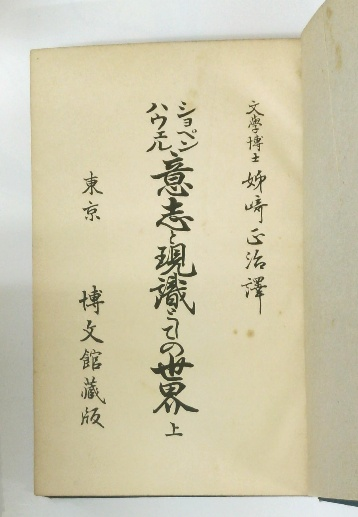 文學博士 姉崎正治譯
ショペン
ハウェル 意志と現識としての世界 上
東京 博文館藏版